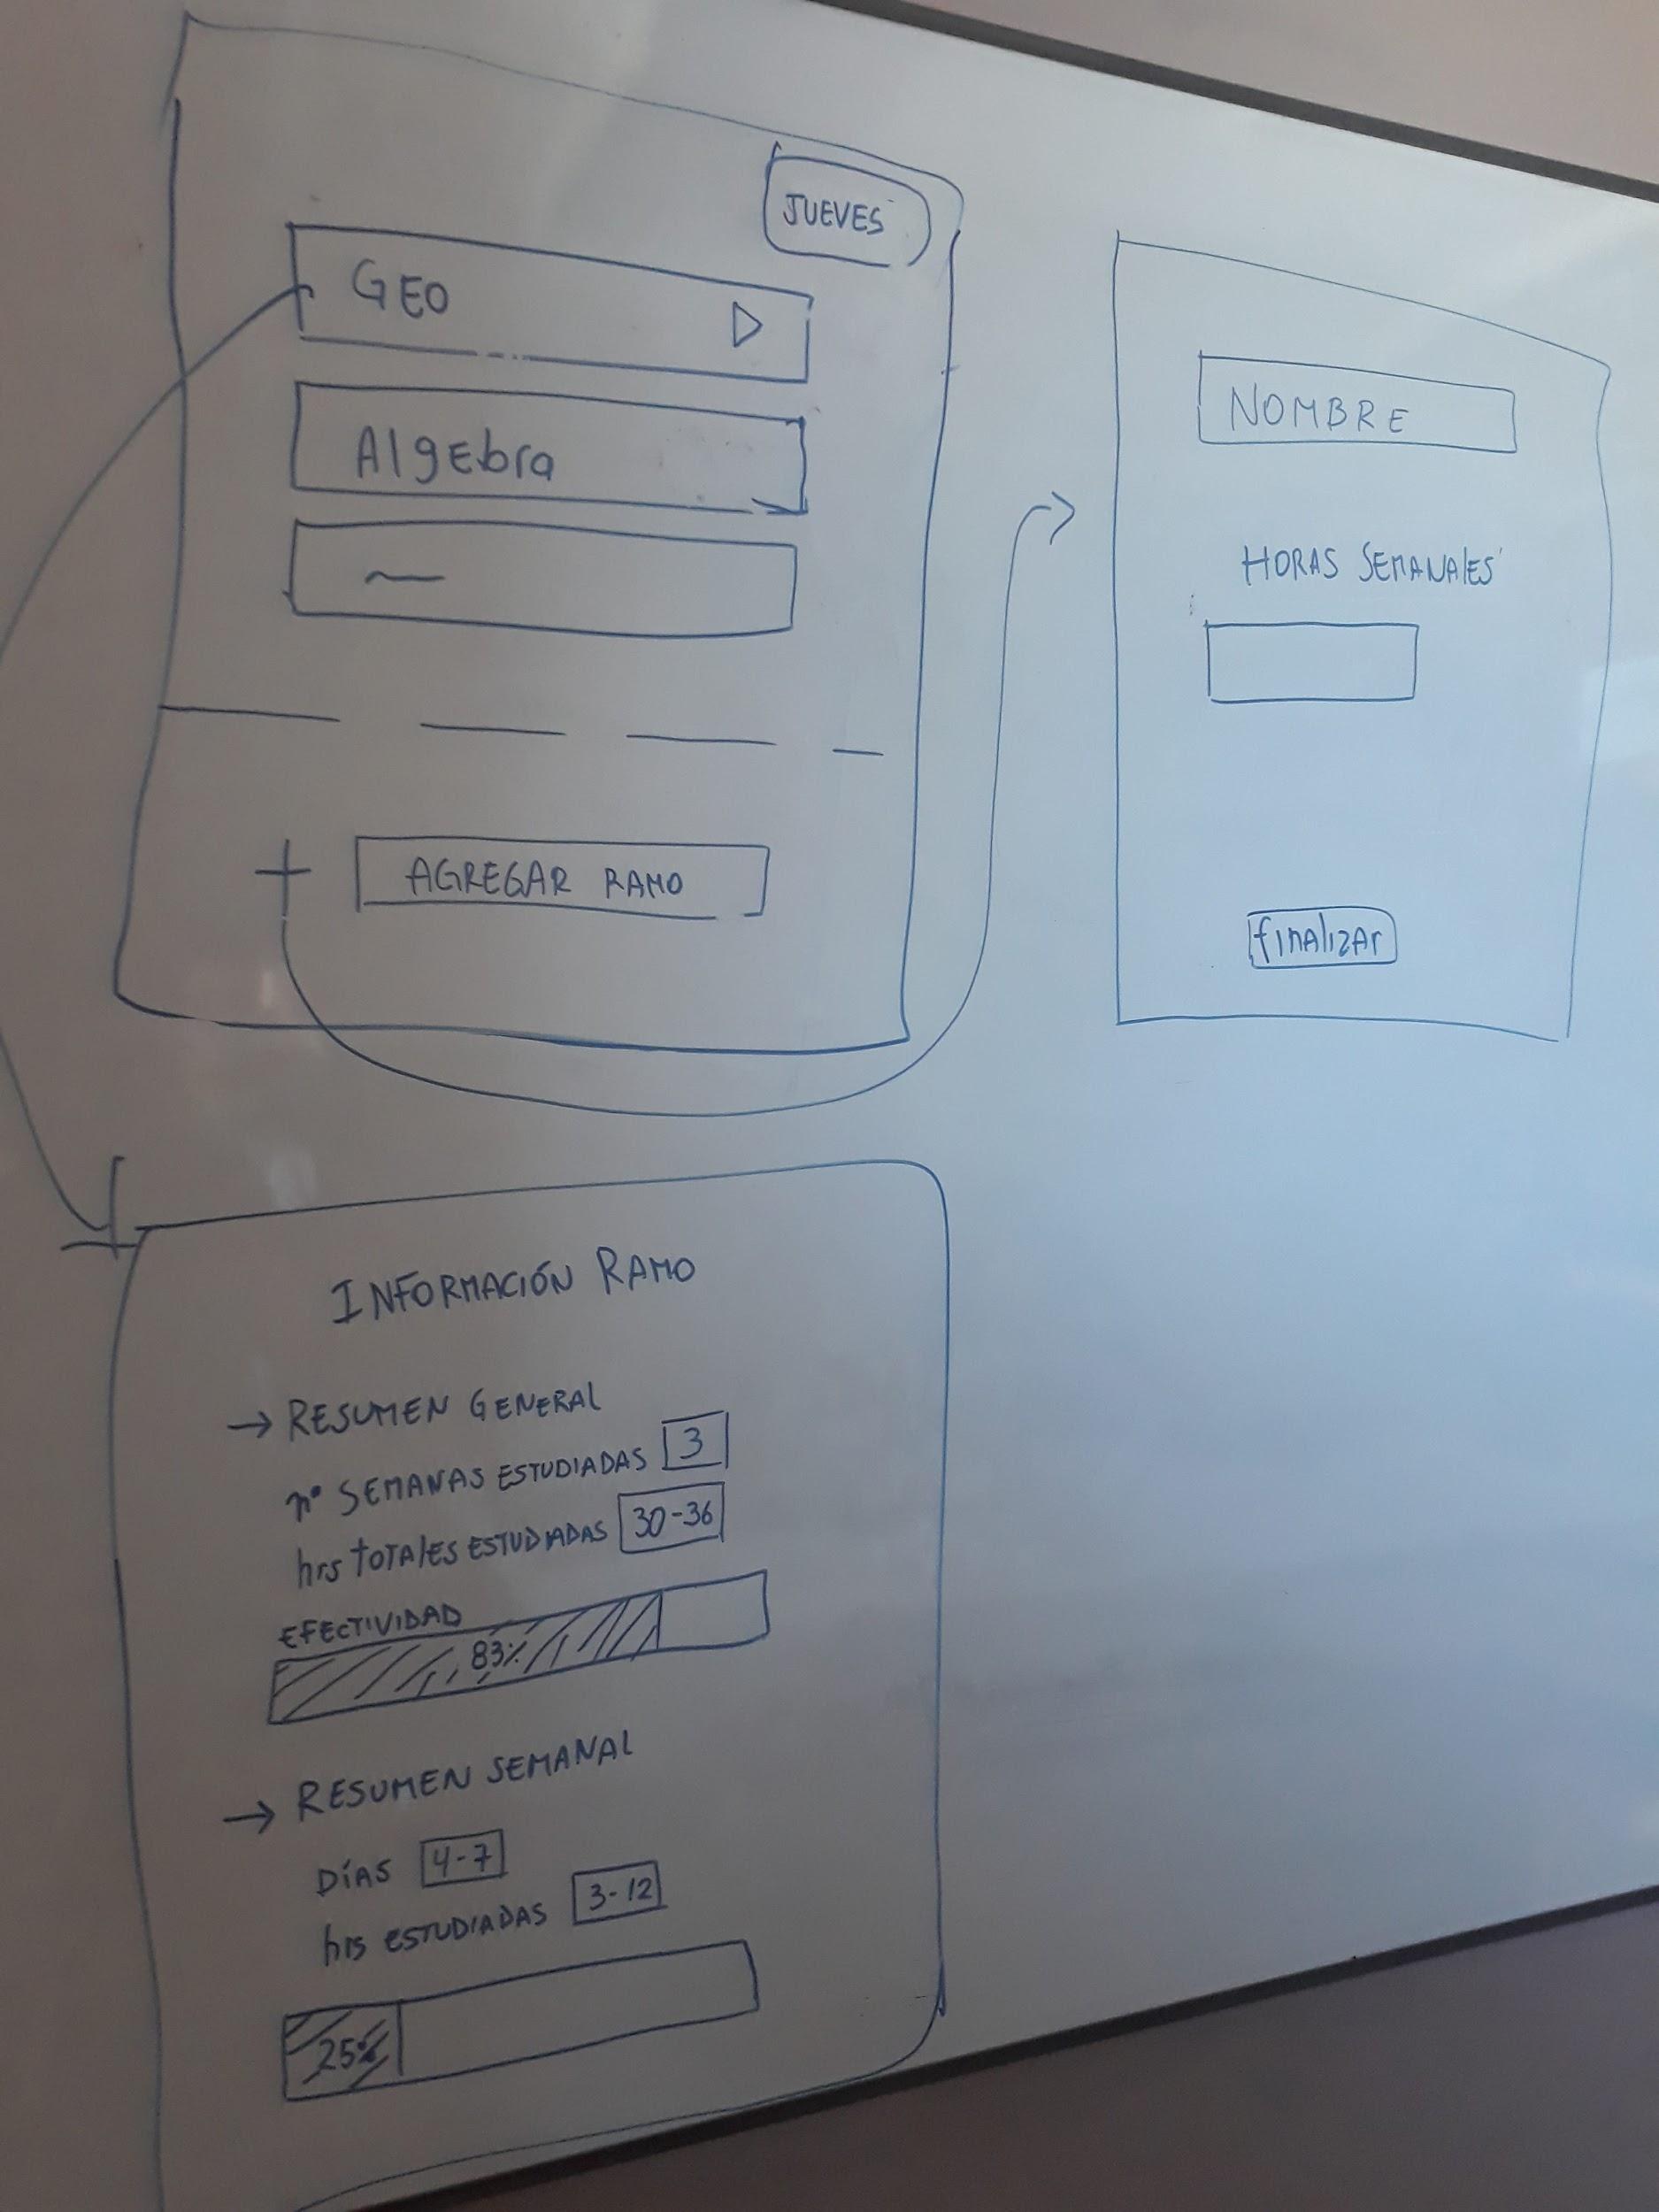 JUEVES
GEO
Algebra
AGREGAR RAMO
NOMBRE
HORAS SEMANALES
finalizar
INFORMACIÓN RAMO
→ RESUMEN GENERAL
nº SEMANAS ESTUDIADAS 3
hrs totales ESTUDIADAS 30-36
EFECTIVIDAD
83%
→ RESUMEN SEMANAL
DÍAS 4-7
hrs ESTUDIADAS 3-12
25%